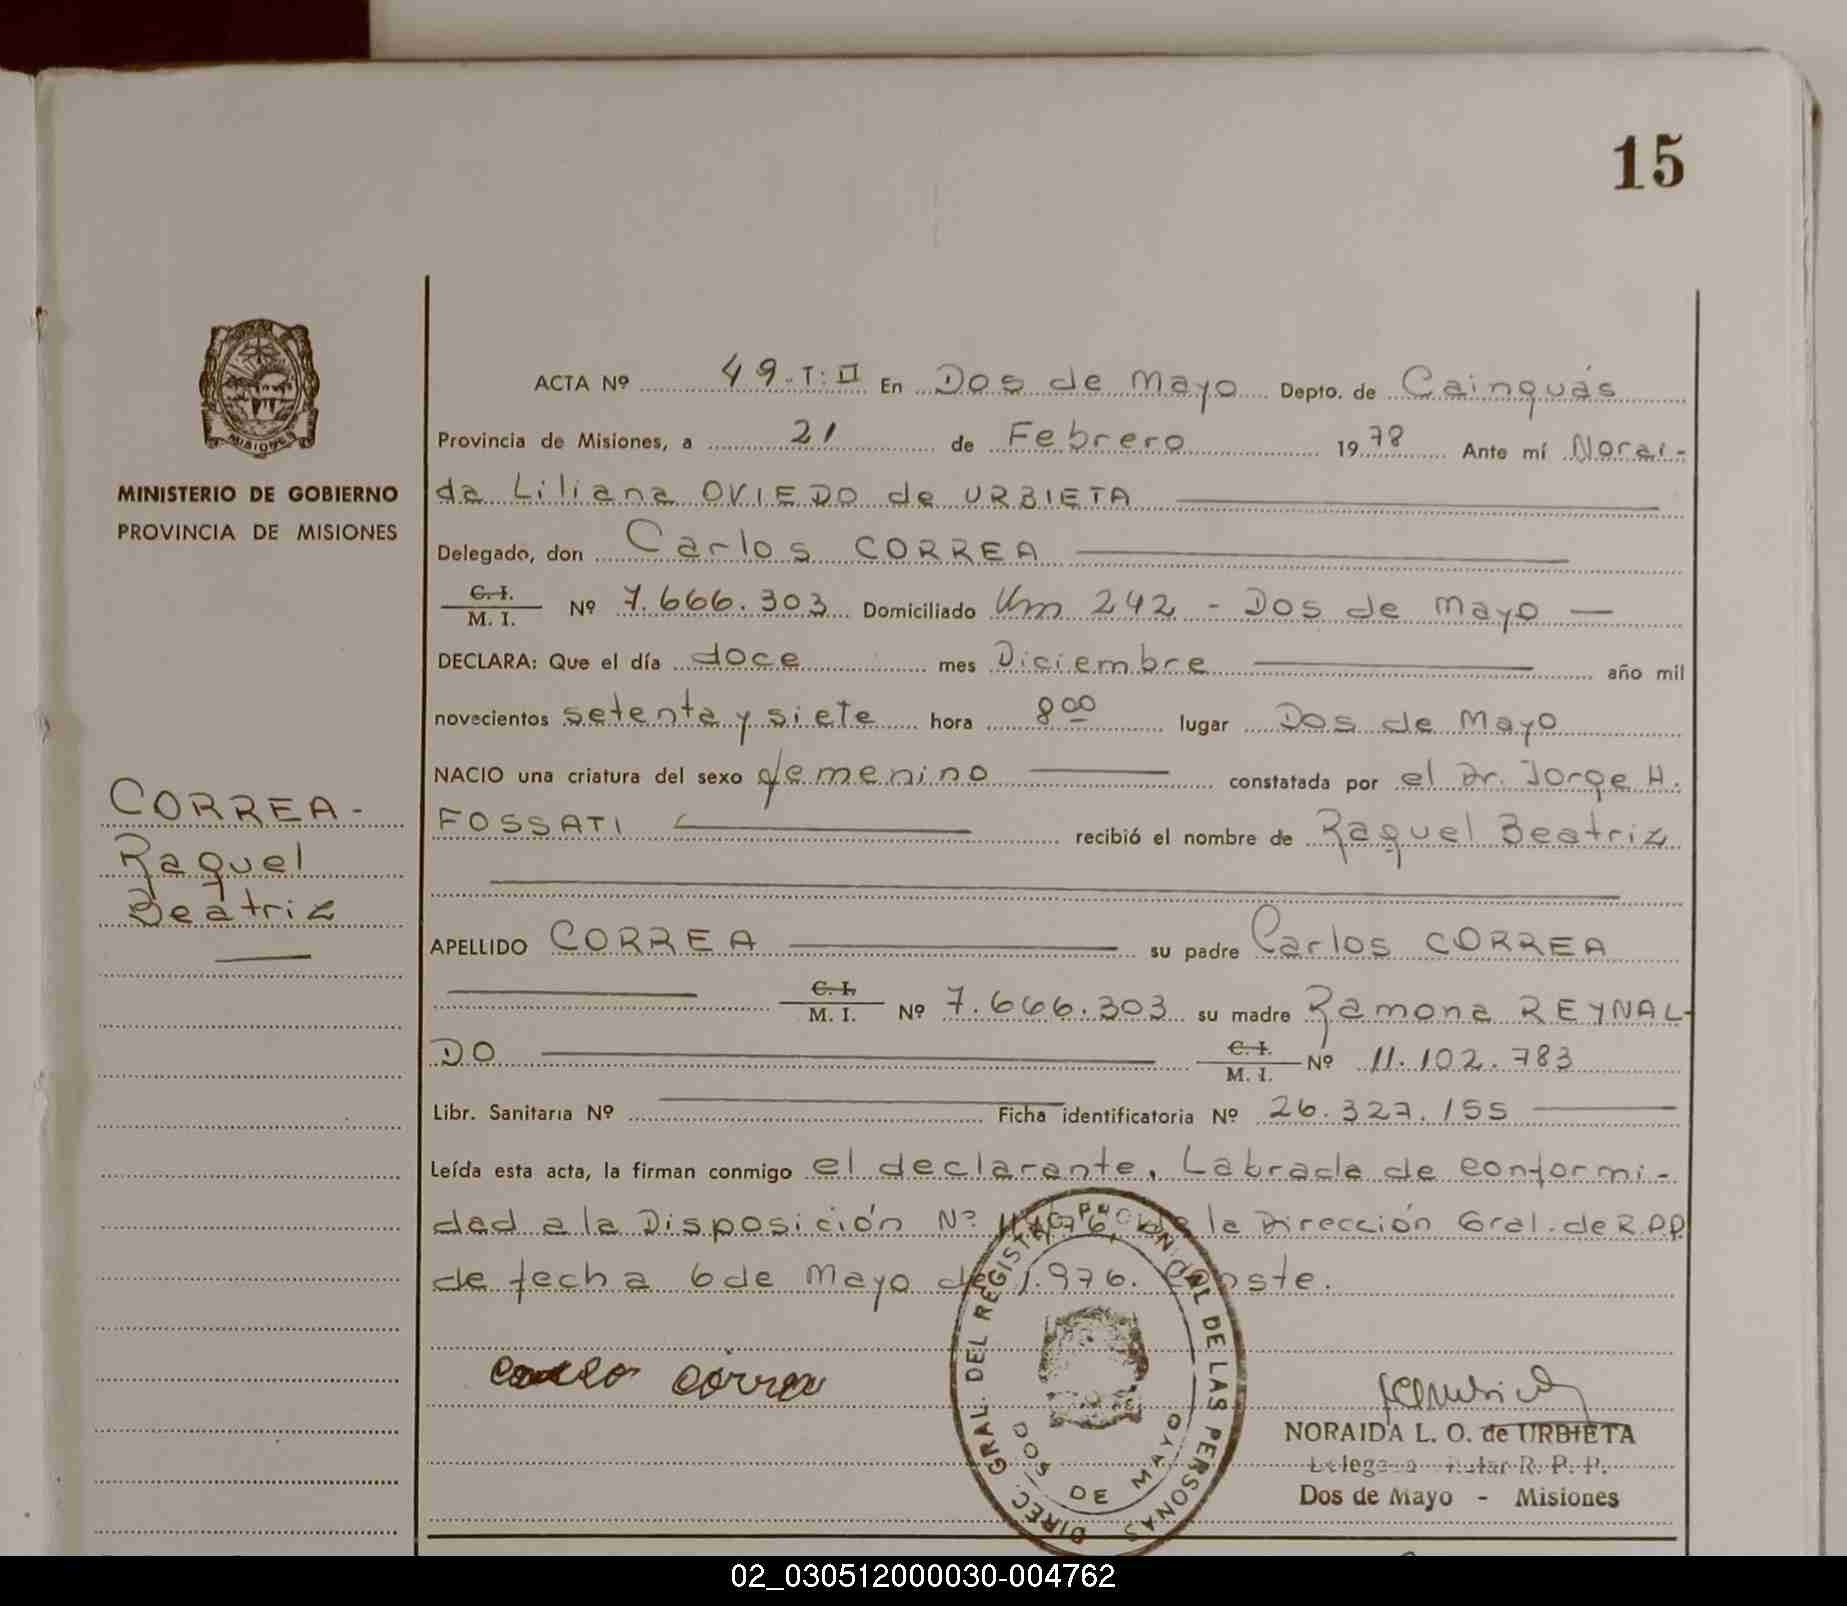 15
MISIONES
MINISTERIO DE GOBIERNO
PROVINCIA DE MISIONES
CORREA-
Raquel
Beatriz
ACTA Nº 49-T:II En Dos de Mayo Depto. de Cainguás
Provincia de Misiones, a 21 de Febrero 1978 Ante mí Norai-
da Liliana OVIEDO de URBIETA
Delegado, don Carlos CORREA
C.I.
M. I. Nº 7.666.303 Domiciliado Km 242 - Dos de Mayo
DECLARA: Que el día doce mes Diciembre año mil
novecientos setenta y siete hora 8 00 lugar Dos de Mayo
NACIO una criatura del sexo femenino constatada por el Dr. Jorge H.
FOSSATI recibió el nombre de Raquel Beatriz
APELLIDO CORREA su padre Carlos CORREA
C.I.
M. I. Nº 7.666.303 su madre Ramona REYNAL-
DO C.I.
M. I. Nº 11.102.783
Libr. Sanitaria Nº Ficha identificatoria Nº 26.327.155
Leída esta acta, la firman conmigo el declarante. Labrada de conformi-
dad a la Disposición Nº de la Dirección Gral. de R.P.P
de fecha 6 de Mayo de 1.976. Conste.
DIREC. GRAL. DEL REGISTRO PROVINCIAL DE LAS PERSONAS
DOS DE MAYO
NORAIDA L. O. de URBIETA
R. P. P.
Dos de Mayo - Misiones
02_030512000030-004762